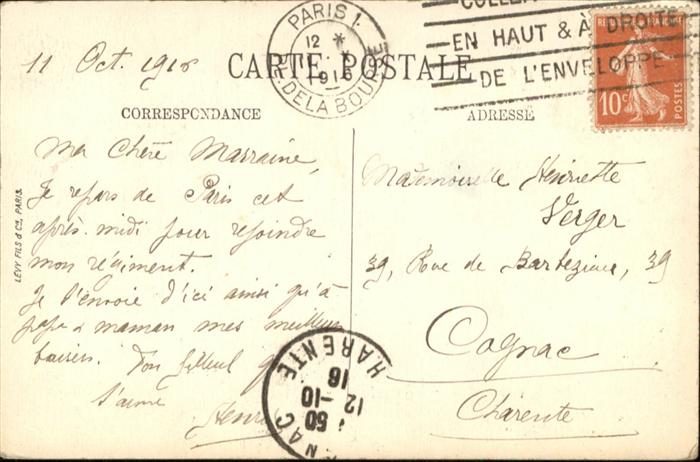 COLLER
EN HAUT & À DROITE
DE L'ENVELOPPE
PARIS 1.
12 *
1916
R. DE LA BOURSE
RÉPUBLIQUE FRANÇAISE
10c
POSTES
11 Oct. 1916
CARTE POSTALE
CORRESPONDANCE
ADRESSE
Ma chère Marraine,
Je repars de Paris cet
après-midi pour rejoindre
mon régiment.
Je t'envoie d'ici ainsi qu'à
papa & maman mes meilleurs
baisers. Ton filleul qui
t'aime
Henri
Mademoiselle Henriette
Verger
39, Rue de Barbezieux, 39
Cognac
Charente
LEVY FILS & Cie, PARIS
NAC
HARENTE
50
12-10
16